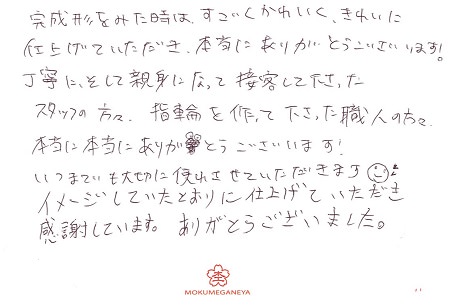 完成形をみた時は、すごくかわいく、きれいに
仕上げていただき、本当にありがとうございます!
丁寧に、そして親身になって接客して下さった
スタッフの方々、指輪を作って下さった職人の方々、
本当に本当にありがとうございます!
いつまでも大切に使わさせていただきます
イメージしていたとおりに仕上げていただき
感謝しています。ありがとうございました。
MOKUMEGANEYA